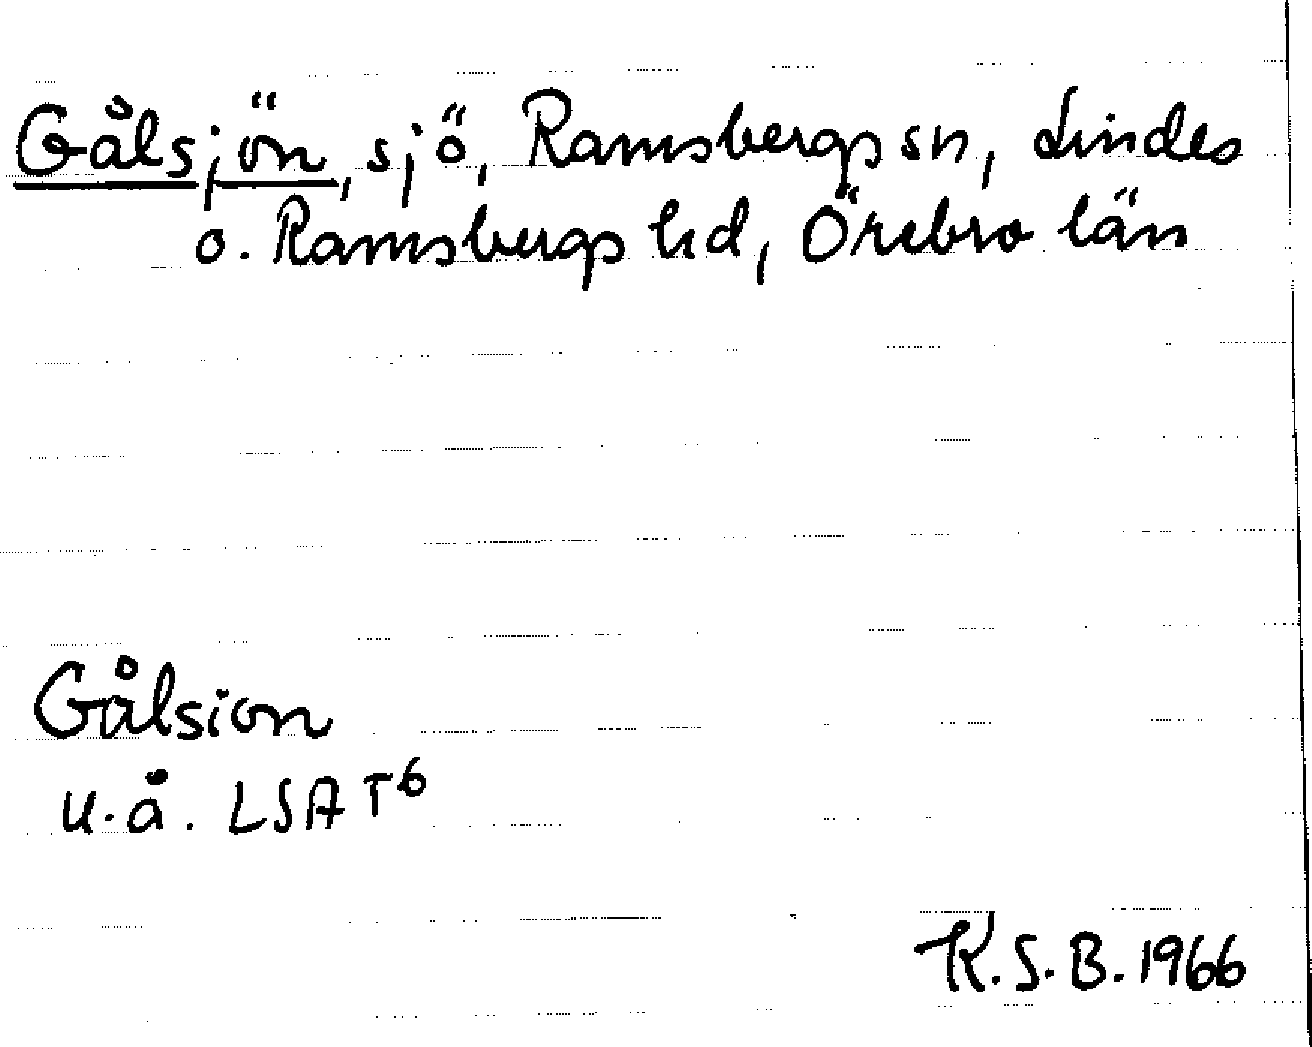 Gålsjön, sjö, Ramsbergs sn, Lindes
o. Ramsbergs hd, Örebro län
Gålsion
u.å. LSA T6
K.S.B. 1966